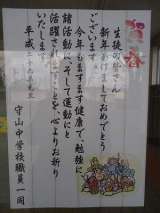 賀春
生徒の皆さん
新年あけましておめでとう
ございます。
今年もますます健康で、勉強に
諸活動に、そして運動にと
活躍されますことを、心よりお祈り
いたします。
平成 年 元旦
守山中学校職員一同